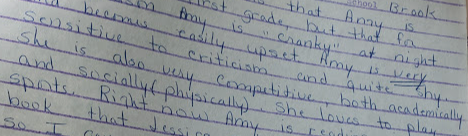 School Brook
first grade, but that Amy is
Amy is "cranky" at night
and becomes easily upset Amy is very
sensitive to criticism and quite shy.
She is also very competitive, both academically
and socially (physically). She loves to play
sports. Right now Amy is
book that
so I